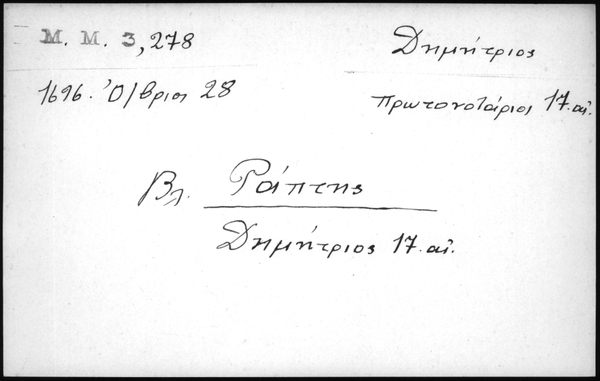 Μ. Μ. 3,278
Δημήτριος
1696. Ὀ/βριος 28
πρωτονοτάριος 17. αἰ.
Βλ. Ράπτης
Δημήτριος 17. αἰ.